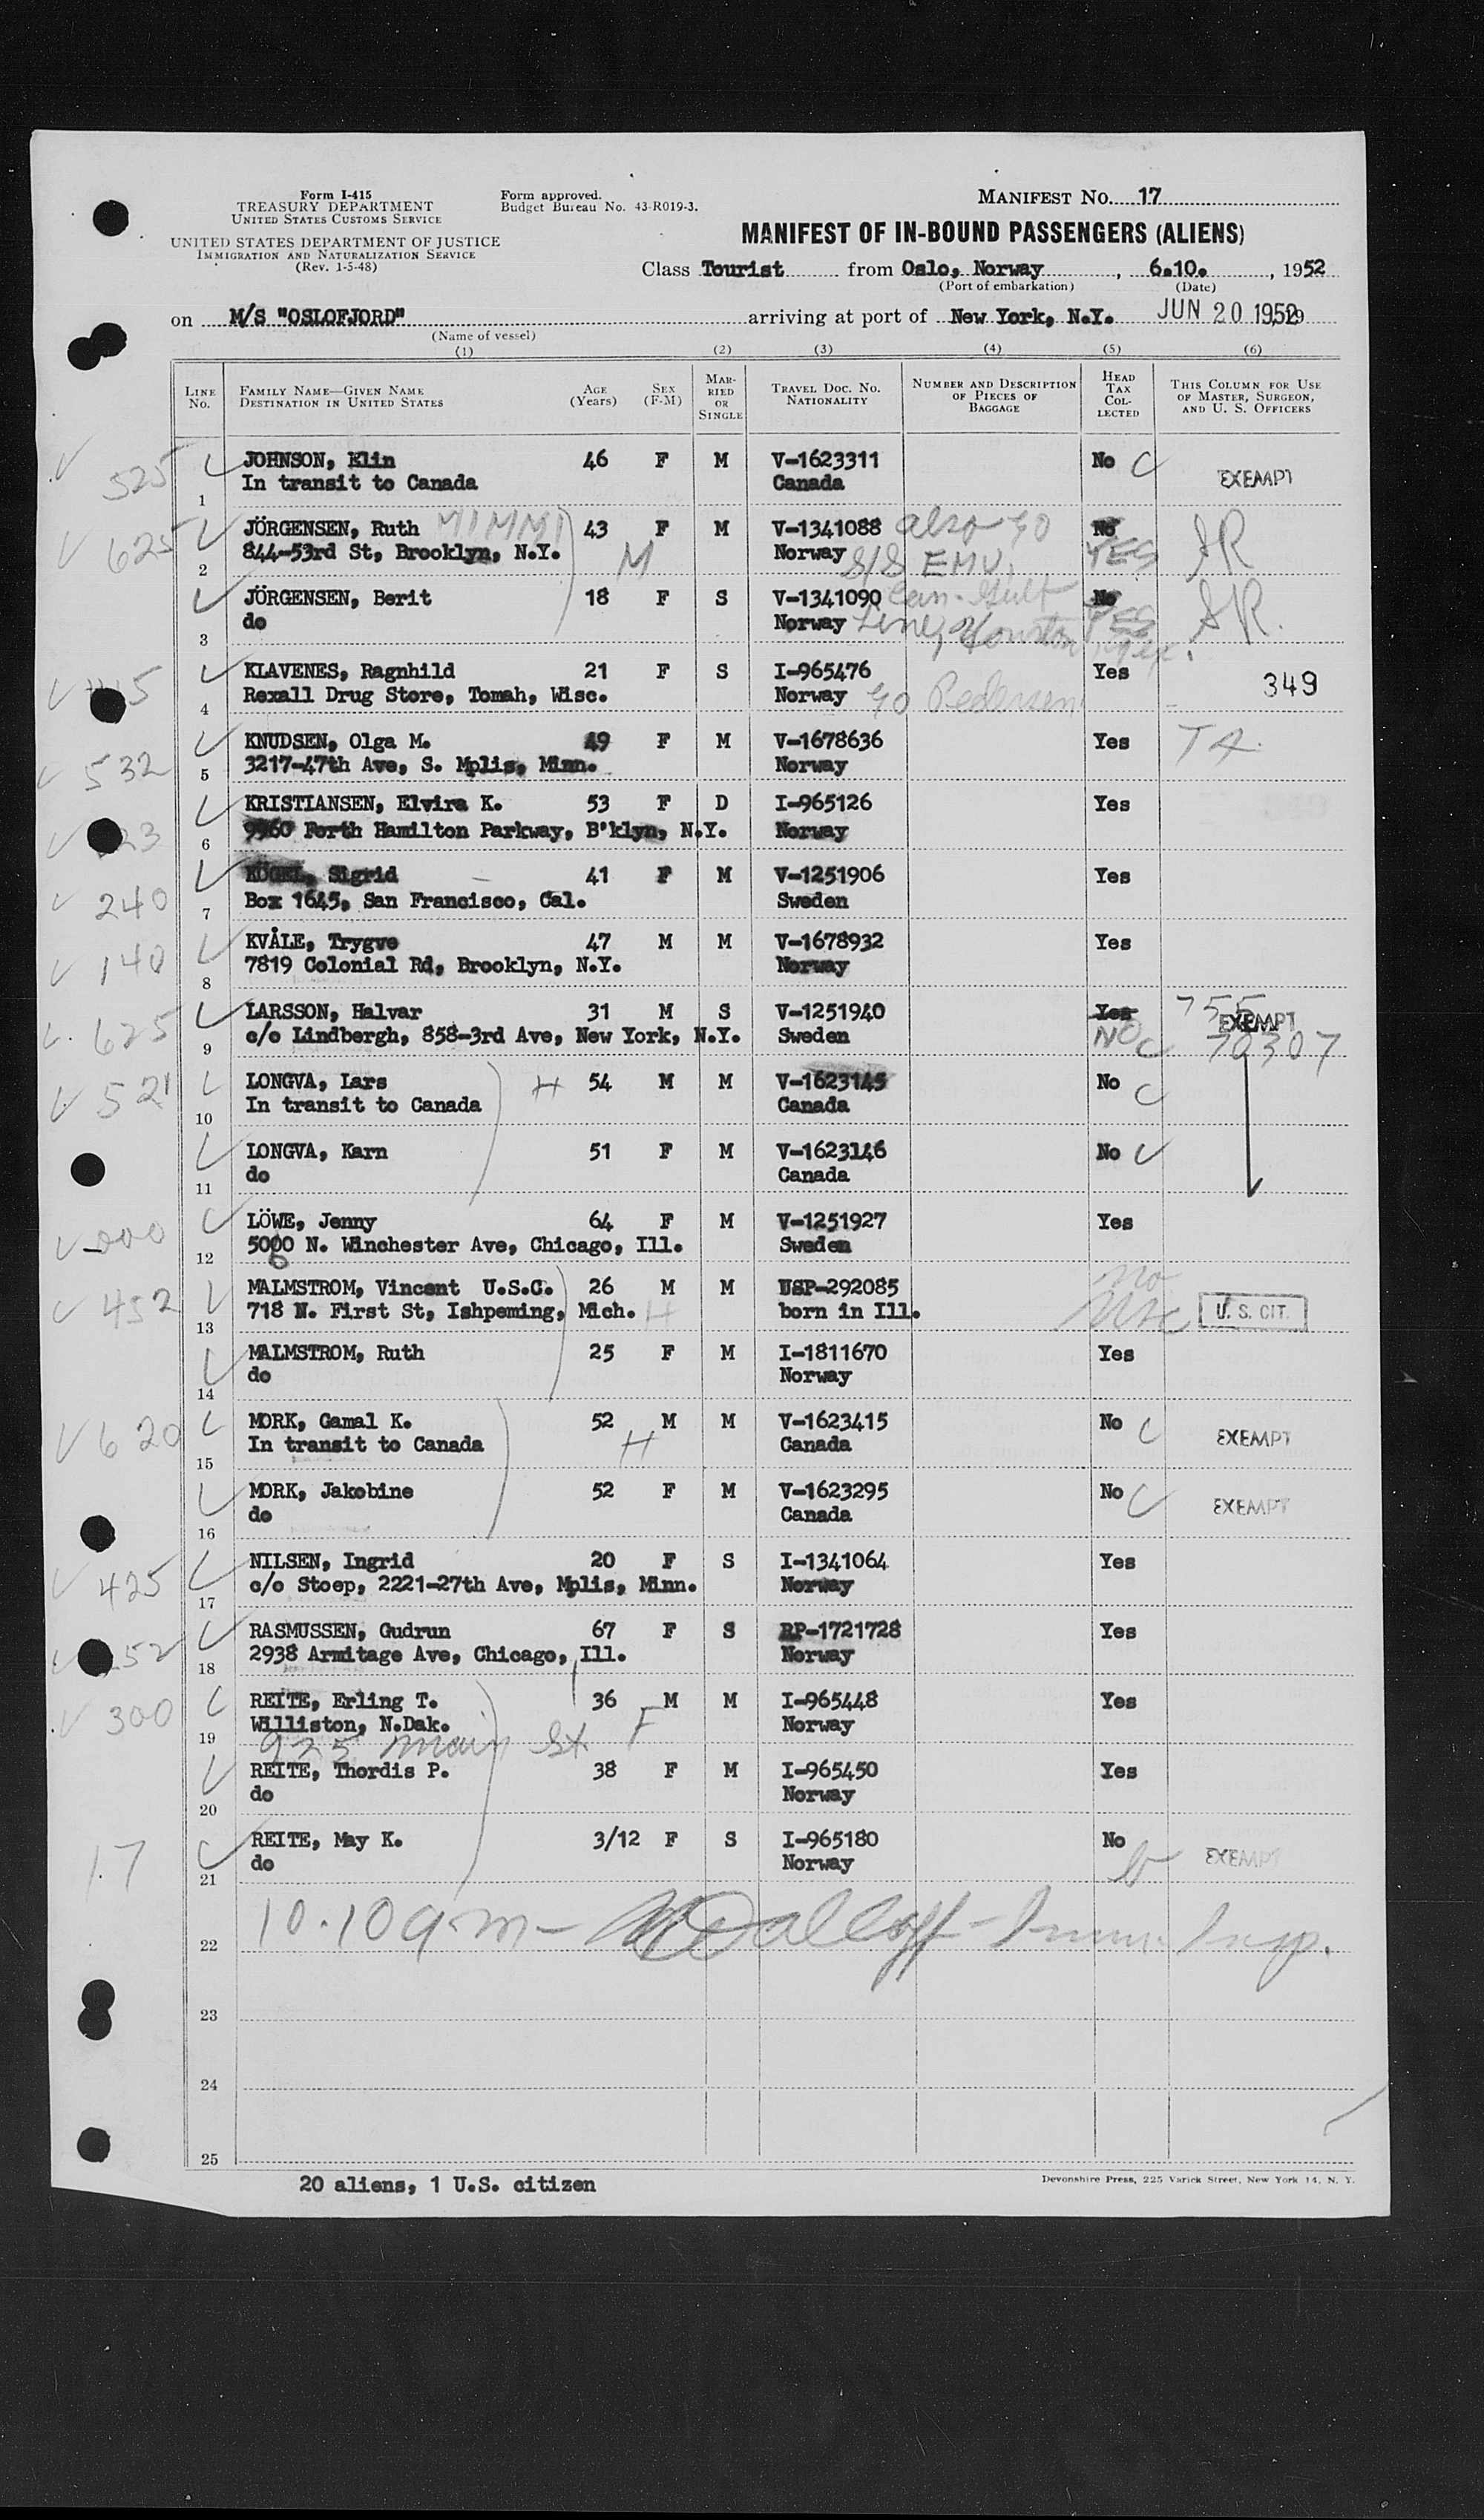 Form I-415
TREASURY DEPARTMENT
UNITED STATES CUSTOMS SERVICE
UNITED STATES DEPARTMENT OF JUSTICE
IMMIGRATION AND NATURALIZATION SERVICE
(Rev. 1-5-48)
Form approved.
Budget Bureau No. 43-R019-3.
MANIFEST NO. 17
MANIFEST OF IN-BOUND PASSENGERS (ALIENS)
Class Tourist from Oslo, Norway, 6.10., 1952
(Port of embarkation) (Date)
on M/S "OSLOFJORD" arriving at port of New York, N.Y. JUN 20 1952, 19
(Name of vessel)
(1) (2) (3) (4) (5) (6)
LINE NO. FAMILY NAME—GIVEN NAME DESTINATION IN UNITED STATES AGE (YEARS) SEX (F-M) MARRIED OR SINGLE TRAVEL DOC. NO. NATIONALITY NUMBER AND DESCRIPTION OF PIECES OF BAGGAGE HEAD TAX COLLECTED THIS COLUMN FOR USE OF MASTER, SURGEON, AND U. S. OFFICERS
525 JOHNSON, Elin 46 F M V-1623311 No C EXEMPT
1 In transit to Canada Canada
625 JÖRGENSEN, Ruth MIMMI 43 F M V-1341088 also go No SR
2 844-53rd St, Brooklyn, N.Y. M Norway S/S EMU, YES
JÖRGENSEN, Berit 18 F S V-1341090 No SR.
3 do Norway Line, Houston YES
KLAVENES, Ragnhild 21 F S I-965476 Yes 349
4 Rexall Drug Store, Tomah, Wisc. Norway go Pedersen
532 KNUDSEN, Olga M. 49 F M V-1678636 Yes TA.
5 3217-47th Ave, S. Mplis, Minn. Norway
KRISTIANSEN, Elvira K. 53 F D I-965126 Yes
6 9960 Forth Hamilton Parkway, B'klyn, N.Y. Norway
240 KÖGEL, Sigrid 41 F M V-1251906 Yes
7 Box 1645, San Francisco, Cal. Sweden
140 KVÅLE, Trygve 47 M M V-1678932 Yes
8 7819 Colonial Rd, Brooklyn, N.Y. Norway
625 LARSSON, Halvar 31 M S V-1251940 Yes 755 EXEMPT
9 c/o Lindbergh, 858-3rd Ave, New York, N.Y. Sweden NO C 70307
521 LONGVA, Lars H 54 M M V-1623145 No C
10 In transit to Canada Canada
LONGVA, Karn 51 F M V-1623146 No C
11 do Canada
000 LÖWE, Jenny 64 F M V-1251927 Yes
12 5000 N. Winchester Ave, Chicago, Ill. Sweden
452 MALMSTROM, Vincent U.S.C. 26 M M USP-292085 no
13 718 N. First St, Ishpeming, Mich. H born in Ill. USC U. S. CIT.
MALMSTROM, Ruth 25 F M I-1811670 Yes
14 do Norway
620 MORK, Gamal K. 52 M M V-1623415 No C EXEMPT
15 In transit to Canada H Canada
MORK, Jakobine 52 F M V-1623295 No C EXEMPT
16 do Canada
425 NILSEN, Ingrid 20 F S I-1341064 Yes
17 c/o Stoep, 2221-27th Ave, Mplis, Minn. Norway
252 RASMUSSEN, Gudrun 67 F S RP-1721728 Yes
18 2938 Armitage Ave, Chicago, Ill. Norway
300 REITE, Erling T. 36 M M I-965448 Yes
19 Williston, N.Dak. F Norway
925 Main St.
REITE, Thordis P. 38 F M I-965450 Yes
20 do Norway
17 REITE, May K. 3/12 F S I-965180 No b EXEMPT
21 do Norway
22 10.10 a.m— Imm. Insp.
23
24
25
20 aliens, 1 U.S. citizen
Devonshire Press, 225 Varick Street, New York 14, N. Y.